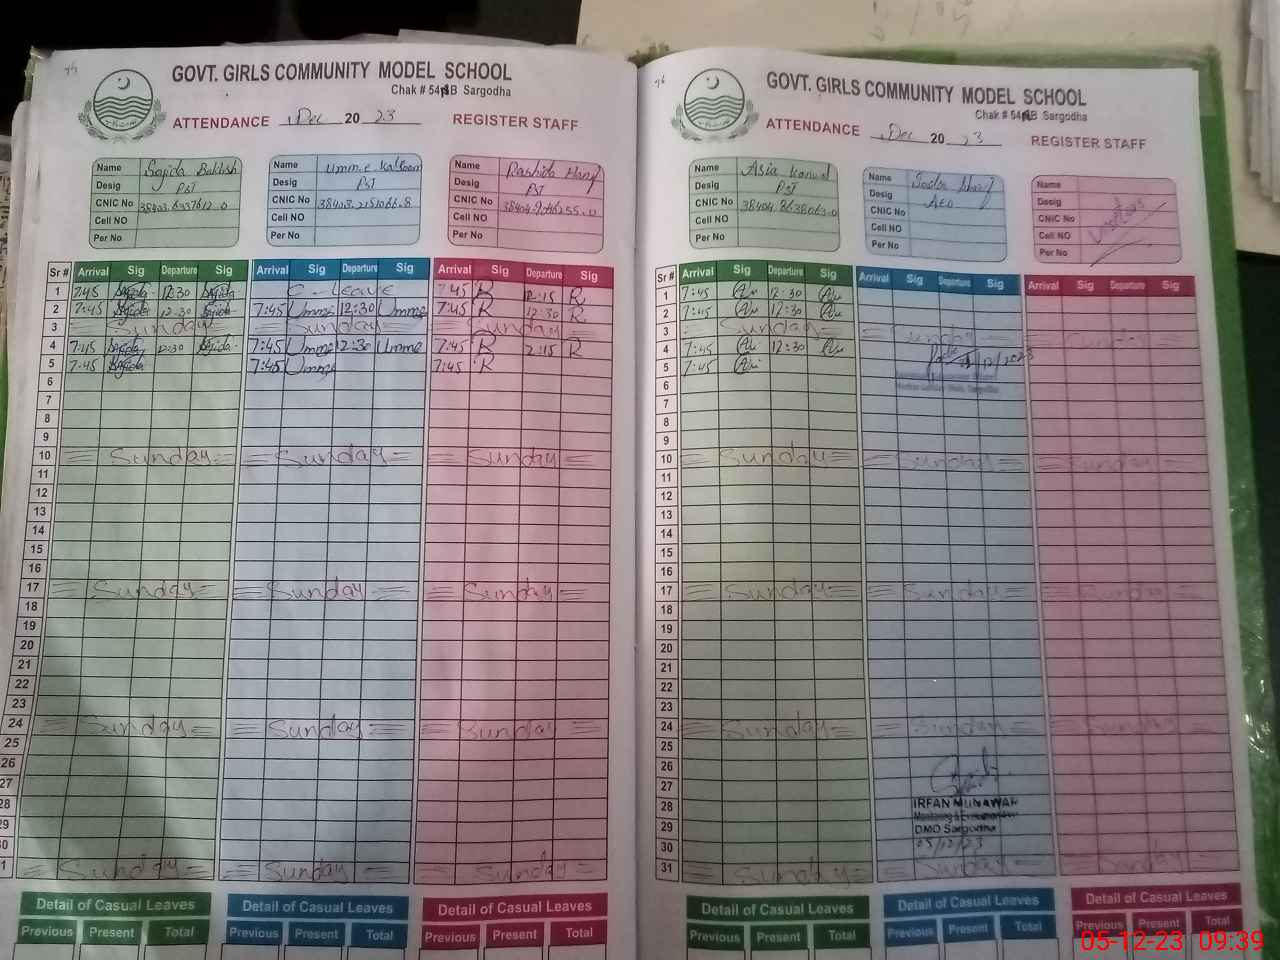 GOVT. GIRLS COMMUNITY MODEL SCHOOL
Chak # 54 SB Sargodha
ATTENDANCE Dec 20 23 REGISTER STAFF
Name Sajida Bakhsh
Desig PST
CNIC No
Cell NO
Per No
Name Umm.e.Kalsoom
Desig PST
CNIC No
Cell NO
Per No
Name Rashida Hanif
Desig PST
CNIC No
Cell NO
Per No
Sr # Arrival Sig Departure Sig Arrival Sig Departure Sig Arrival Sig Departure Sig
1 7:45 Sajida 12:30 Sajida C - Leave 7:45 R 12:15 R
2 7:45 Sajida 12:30 Sajida 7:45 Umme 12:30 Umme 7:45 R 12:30 R
3 Sunday Sunday Sunday
4 7:45 Sajida 12:30 Sajida 7:45 Umme 12:30 Umme 7:45 R 2:15 R
5 7:45 Sajida 7:45 Umme 7:45 R
6
7
8
9
10 Sunday Sunday Sunday
11
12
13
14
15
16
17 Sunday Sunday Sunday
18
19
20
21
22
23
24 Sunday Sunday Sunday
25
26
27
28
29
30
31 Sunday Sunday Sunday
Detail of Casual Leaves Detail of Casual Leaves Detail of Casual Leaves
Previous Present Total Previous Present Total Previous Present Total
GOVT. GIRLS COMMUNITY MODEL SCHOOL
Chak # 54 SB Sargodha
ATTENDANCE Dec 20 23 REGISTER STAFF
Name Asia Kanwal
Desig PST
CNIC No
Cell NO
Per No
Name
Desig AEO
CNIC No
Cell NO
Per No
Name
Desig
CNIC No
Cell NO
Per No
Visitors
Sr # Arrival Sig Departure Sig Arrival Sig Departure Sig Arrival Sig Departure Sig
1 7:45 12:30
2 7:45 12:30
3 Sunday Sunday Sunday
4 7:45 12:30
5 7:45
6
7
8
9
10 Sunday Sunday Sunday
11
12
13
14
15
16
17 Sunday Sunday Sunday
18
19
20
21
22
23
24 Sunday Sunday Sunday
25
26
27
28 IRFAN MUNAWAR
29 DMO Sargodha
30 05/12/23
31 Sunday Sunday Sunday
Detail of Casual Leaves Detail of Casual Leaves Detail of Casual Leaves
Previous Present Total Previous Present Total Previous Present Total
05-12-23 09:39